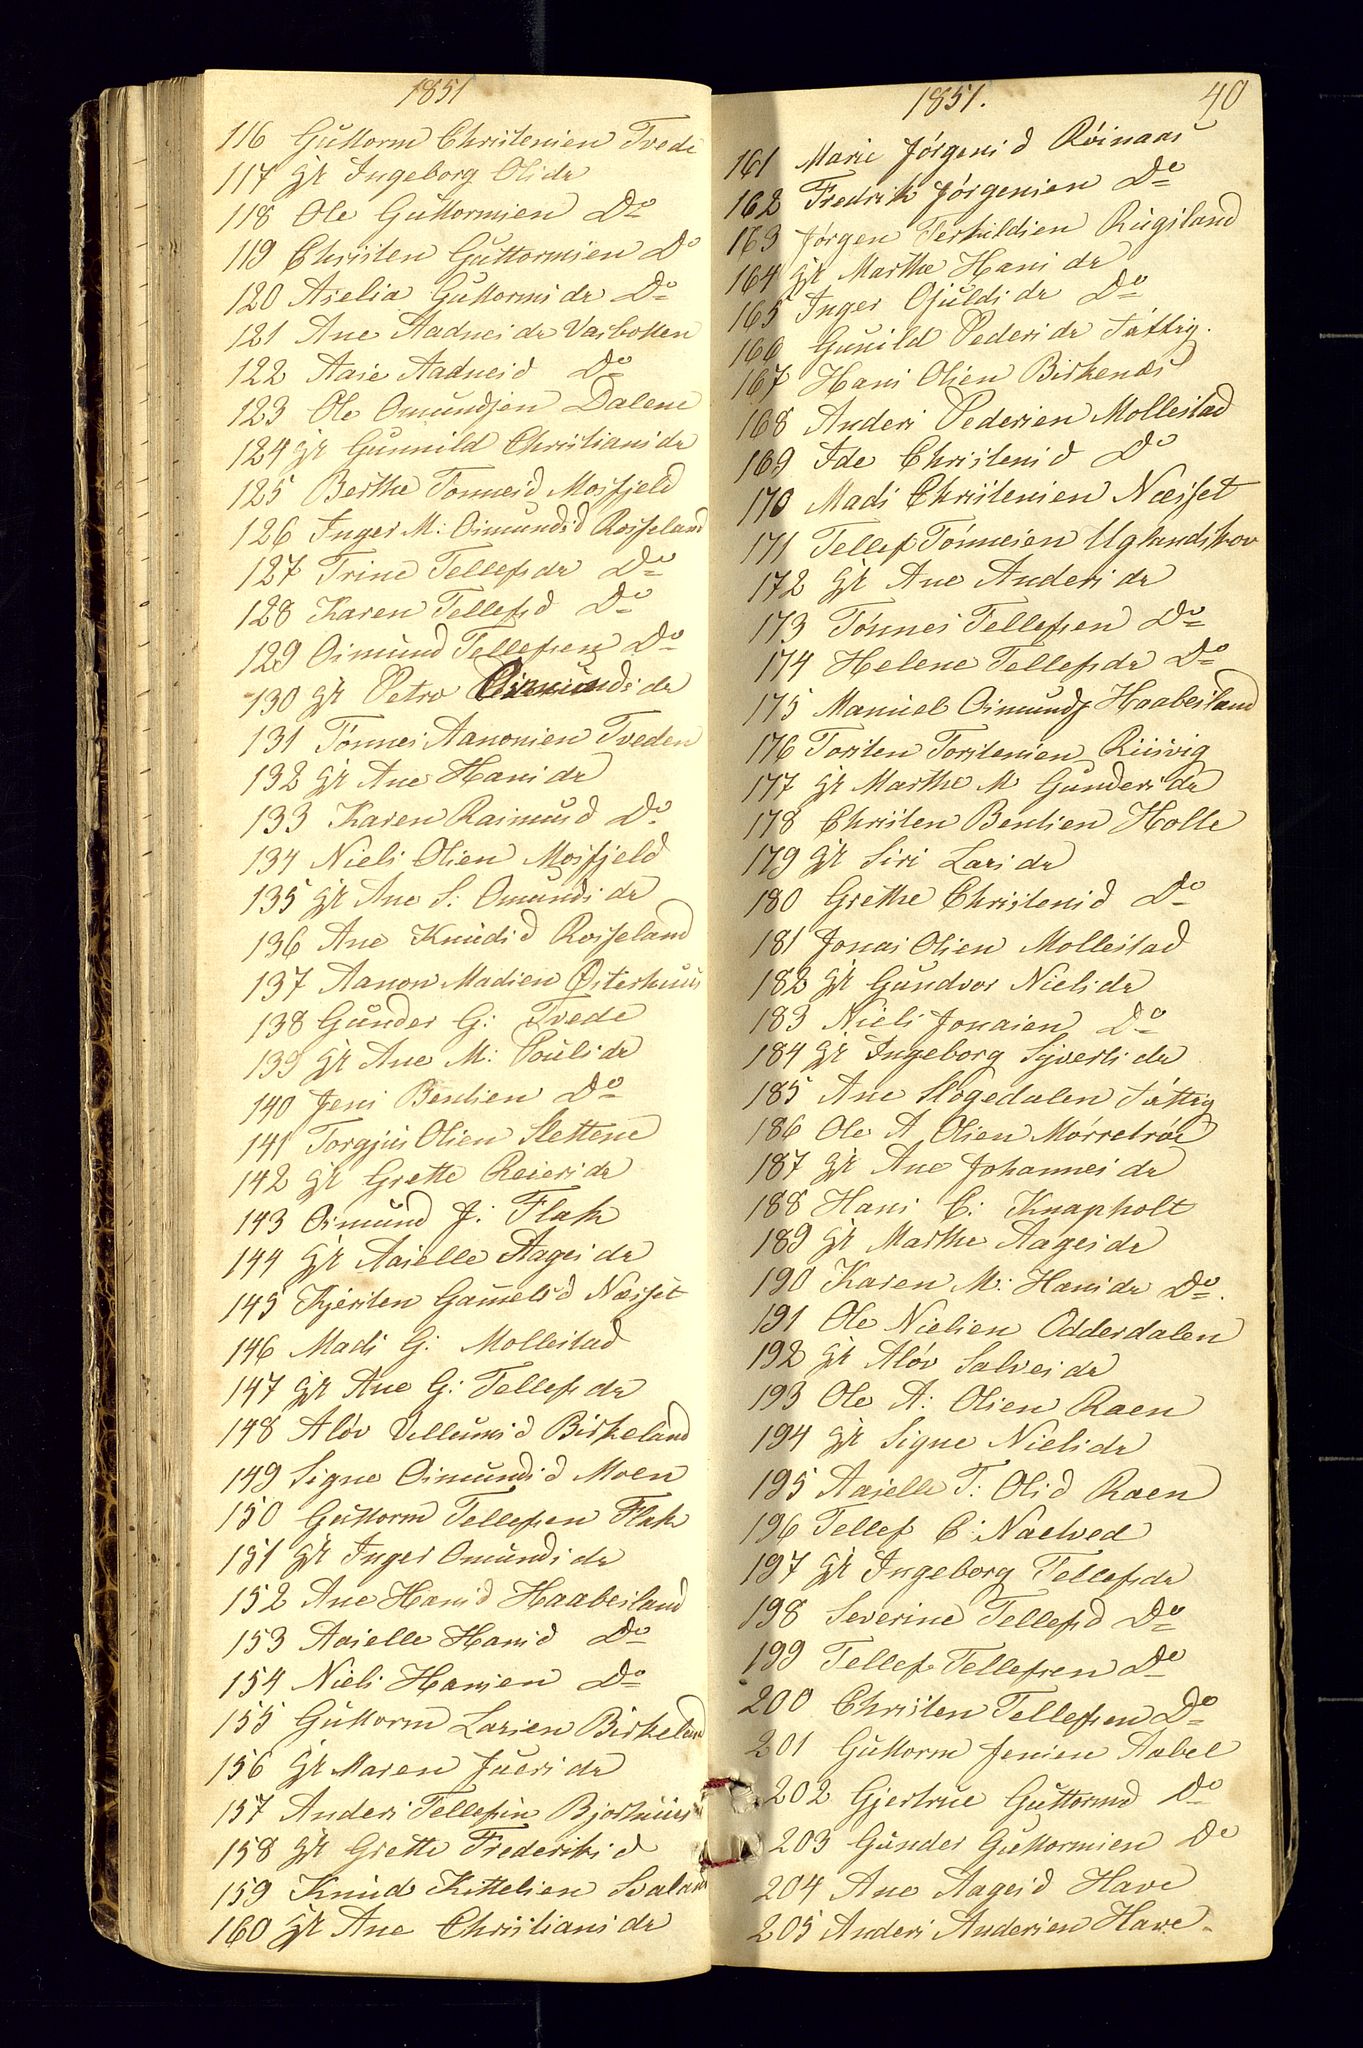 1851
116 Guttorm Christensen Tvede
117 Gr Ingeborg Olsdr
118 Ole Guttormsen Do
119 Christen Guttormsen Do
120 Aselia Guttormsdr Do
121 Ane Aadnesdr Vasbotten
122 Aase Aadnesd Do
123 Ole Omundsen Dalene
124 Gr Gunnild Christiansdr
125 Berthe Tønnesd Mosfjeld
126 Inger M: Osmundsd Rosseland
127 Trine Tellefsdr Do
128 Karen Tellefsd Do
129 Osmund Tellefsen Do
130 Gr Petro Osmundsdr
131 Tønnes Aanonsen Tveden
132 Gr Ane Hansdr
133 Karen Rasmusd Do
134 Niels Olsen Mosfjeld
135 Gr Ane S: Omundsdr
136 Ane Knudsd Rosseland
137 Aanon Madsen Østerhuus
138 Gunder G: Tvede
139 Gr Ane M: Poulsdr
140 Jens Bentsen Do
141 Torgjus Olsen Slettene
142 Gr Grethe Reiersdr
143 Osmund J: Flak
144 Gr Aaselle Aagesdr
145 Kjersten Gamelsd Næsset
146 Mads G: Mollestad
147 Gr Ane G: Tellefsdr
148 Aløv Vellumsd Birkeland
149 Signe Osmundsd Moen
150 Guttorm Tellefsen Flak
151 Gr Inger Omundsdr
152 Ane Hansd Haabesland
153 Aaselle Hansd Do
154 Niels Hansen Do
155 Guttorm Larsen Birkeland
156 Gr Maren Juersdr
157 Anders Tellefsen Bjorhuus
158 Gr Grethe Frederiksd
159 Knud Kittelsen Svaland
160 Gr Ane Christiansdr
1851. 40
161 Marie Jørgensd Røinaas
162 Fredrik Jørgensen Do
163 Jørgen Terkildsen Rugsland
164 Gr Marthe Hansdr
165 Inger Ojuldsdr Do
166 Gunild Pedersdr Fattig.
167 Hans Olsen Birkenæs
168 Anders Pedersen Mollestad
169 Ide Christensd Do
170 Mads Christensen Næsset
171 Tellef Tønnesen Uglandskov
172 Gr Ane Andersdr
173 Tønnes Tellefsen Do
174 Helene Tellefsdr Do
175 Manuel Osmunds Haabesland
176 Torsten Torstensen Riisvig
177 Gr Marthe M Gundersdr
178 Christen Bentsen Holle
179 Gr Siri Larsdr
180 Grethe Christensd Do
181 Jonas Olsen Mollestad
182 Gr Gundvor Nielsdr
183 Niels Jonasen Do
184 Gr Ingeborg Syvertsdr
185 Ane Slogedalen Fattig
186 Ole A Olsen Mørretrøe
187 Gr Ane Johannesdr
188 Hans C: Knapholt
189 Gr Marthe Aagesdr
190 Karen M: Hansdr Do.
191 Ole Nielsen Odderdalen
192 Gr Aløv Salvesdr
193 Ole A: Olsen Raen
194 Gr Signe Nielsdr
195 Aaselle T: Olsd Raen
196 Tellef C: Naetved
197 Gr Ingeborg Tellefsdr
198 Severine Tellefsd Do
199 Tellef Tellefsen Do
200 Christen Tellefsen Do
201 Guttorm Jensen Aabel
202 Gjertrue Guttormd Do
203 Gunder Guttormsen Do
204 Ane Aagesd Have
205 Anders Andersen Have